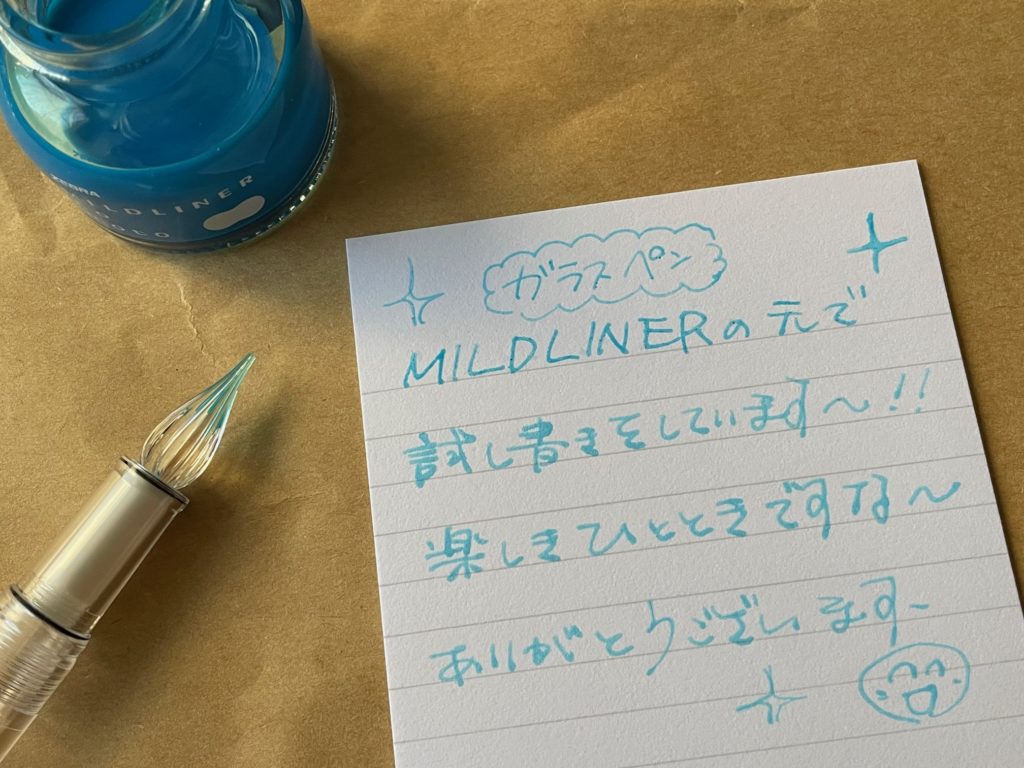 ZEBRA
MILDLINER
の
MOTO
ガラスペン
MILDLINERの元で
試し書きをしています〜!!
楽しきひとときですな〜
ありがとうございます〜